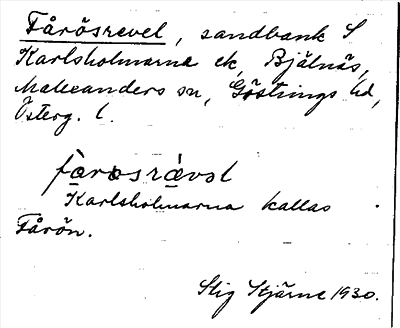 Fårösrevel, sandbank S
Karlsholmarna ek, Bjälnäs,
Malexanders sn, Göstrings hd,
Österg. l.
fårosrǽvəl
Karlsholmarna kallas
Fårön.
Stig Stjärne 1930.